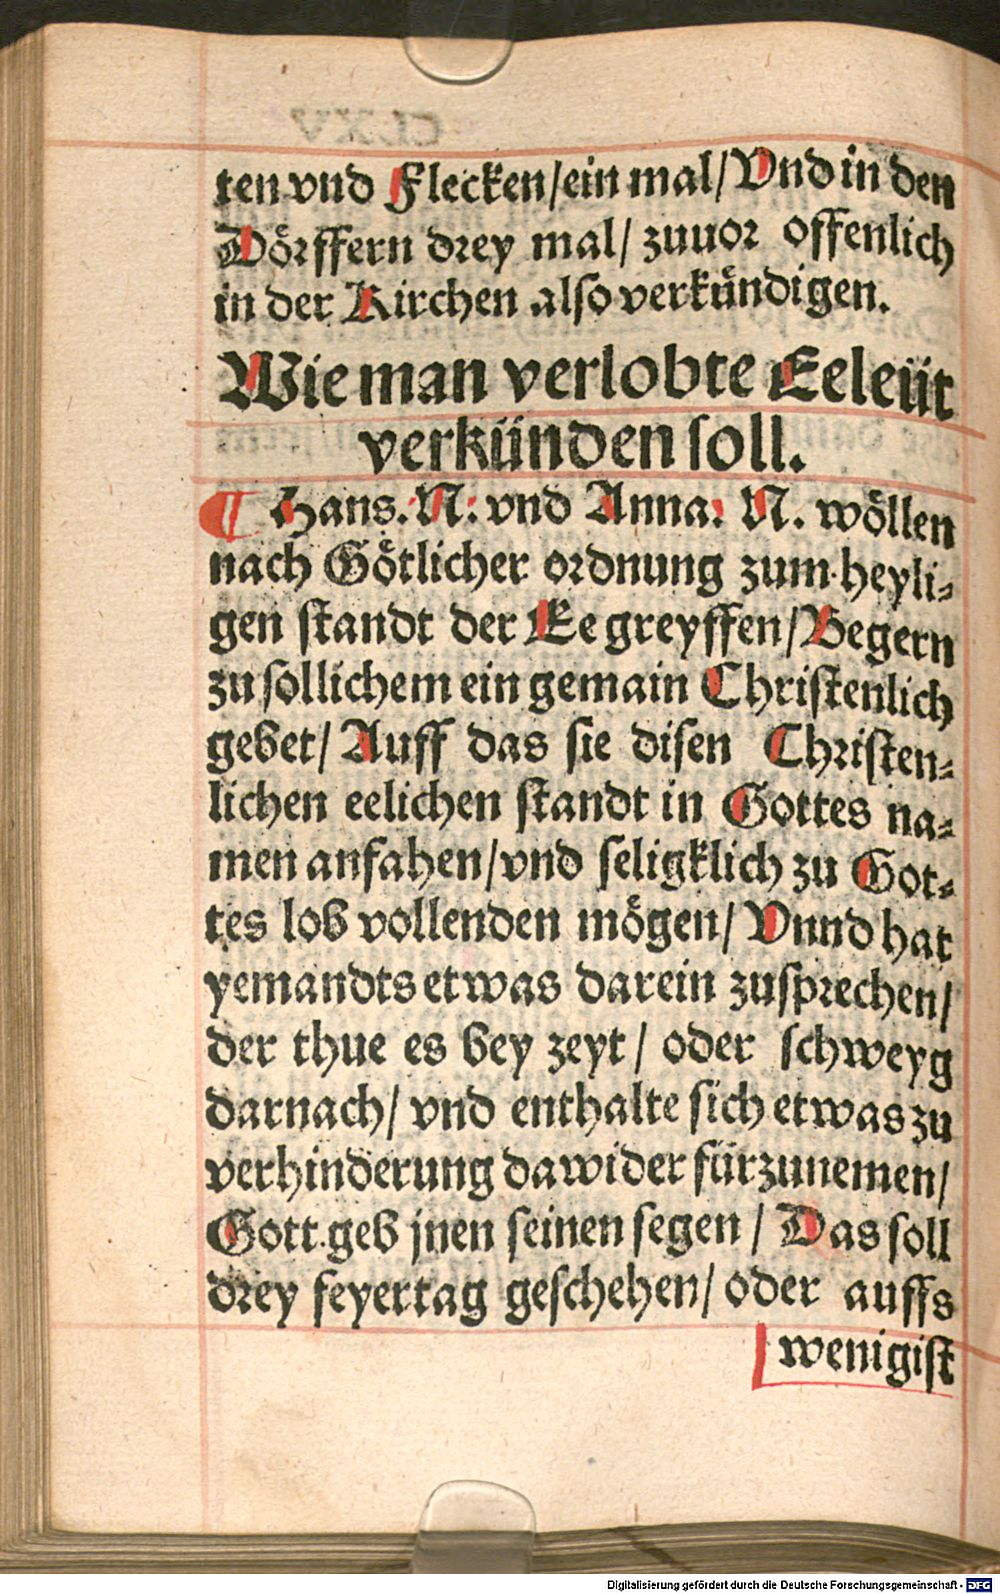 ten vnd Flecken/ein mal/Vnd in den
Dörffern drey mal/ zuuor offenlich
in der Kirchen also verkündigen.
Wie man verlobte Eeleüt
verkünden soll.
¶ Hans. N: vnd Anna: N. wöllen
nach Götlicher ordnung zum heyli-
gen standt der Ee greyffen/Begern
zu sollichem ein gemain Christenlich
gebet/ Auff das sie disen Christen-
lichen eelichen standt in Gottes na-
men anfahen/vnd seligklich zu Got-
tes lob vollenden mögen/ Vnnd hat
yemandts etwas darein zusprechen/
der thue es bey zeyt/ oder schweyg
darnach/ vnd enthalte sich etwas zu
verhinderung dawider fürzunemen/
Gott geb jnen seinen segen/ Das soll
drey feyertag geschehen/ oder auffs
wenigist
Digitalisierung gefördert durch die Deutsche Forschungsgemeinschaft - DFG